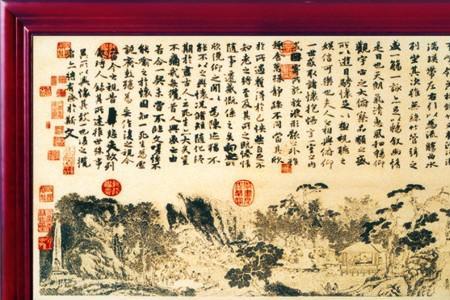 湍暎帶左右引以為流觴曲水
列坐其次雖無絲竹管弦之
盛一觴一詠亦足以暢敘幽情
是日也天朗氣清惠風和暢仰
觀宇宙之大俯察品類之盛
所以遊目騁懷足以極視聽之
娛信可樂也夫人之相與俯仰
一世或取諸懷抱悟言一室之內
或因寄所託放浪形骸之外雖
趣舍萬殊靜躁不同當其欣
於所遇暫得於己怏然自足不
知老之將至及其所之既惓情
隨事遷感慨係之矣向之所欣
俛仰之閒以為陳迹猶不
能不以之興懷況脩短隨化終
期於盡古人云死生亦大矣豈
不痛哉每攬昔人興感之由
若合一契未嘗不臨文嗟悼不
能喻之於懷固知一死生為虛
誕齊彭殤為妄作後之視今
亦由今之視昔悲夫故列
敘時人錄其所述雖世殊事
異所以興懷其致一也後之攬
者亦將有感於斯文